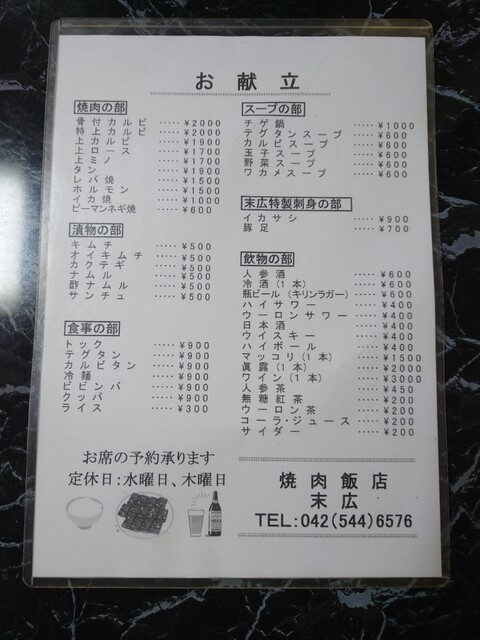 お献立
焼肉の部
骨付カルビ ‥‥‥ ¥2000
特上カルビ ‥‥‥ ¥2000
上カルビ ‥‥‥ ¥1900
上ロース ‥‥‥ ¥1700
上ミノ ‥‥‥ ¥1700
タン ‥‥‥ ¥1900
レバ焼 ‥‥‥ ¥1500
ホルモン ‥‥‥ ¥1500
イカ焼 ‥‥‥ ¥1000
ピーマンネギ焼 ‥‥‥ ¥600
漬物の部
キムチ ‥‥‥ ¥500
オイキムチ ‥‥‥ ¥500
カクテギ ‥‥‥ ¥500
ナムル ‥‥‥ ¥500
酢ナムル ‥‥‥ ¥500
サンチュ ‥‥‥ ¥500
食事の部
トック ‥‥‥ ¥900
テグタン ‥‥‥ ¥900
カルビタン ‥‥‥ ¥900
冷麺 ‥‥‥ ¥900
ビビンバ ‥‥‥ ¥900
クッパ ‥‥‥ ¥900
ライス ‥‥‥ ¥300
お席の予約承ります
定休日:水曜日、木曜日
スープの部
チゲ鍋 ‥‥‥ ¥1000
テグタンスープ ‥‥‥ ¥600
カルビスープ ‥‥‥ ¥600
玉子スープ ‥‥‥ ¥600
野菜スープ ‥‥‥ ¥600
ワカメスープ ‥‥‥ ¥600
末広特製刺身の部
イカサシ ‥‥‥ ¥900
豚足 ‥‥‥ ¥700
飲物の部
人参酒 ‥‥‥ ¥600
冷酒(1本) ‥‥‥ ¥600
瓶ビール(キリンラガー) ‥‥‥ ¥600
ハイサワー ‥‥‥ ¥400
ウーロンサワー ‥‥‥ ¥400
日本酒 ‥‥‥ ¥400
ウイスキー ‥‥‥ ¥400
ハイボール ‥‥‥ ¥400
マッコリ(1本) ‥‥‥ ¥1500
眞露(1本) ‥‥‥ ¥2000
ワイン(1本) ‥‥‥ ¥3000
人参茶 ‥‥‥ ¥450
無糖紅茶 ‥‥‥ ¥200
ウーロン茶 ‥‥‥ ¥200
コーラ・ジュース ‥‥‥ ¥200
サイダー ‥‥‥ ¥200
焼肉飯店
末広
TEL:042(544)6576